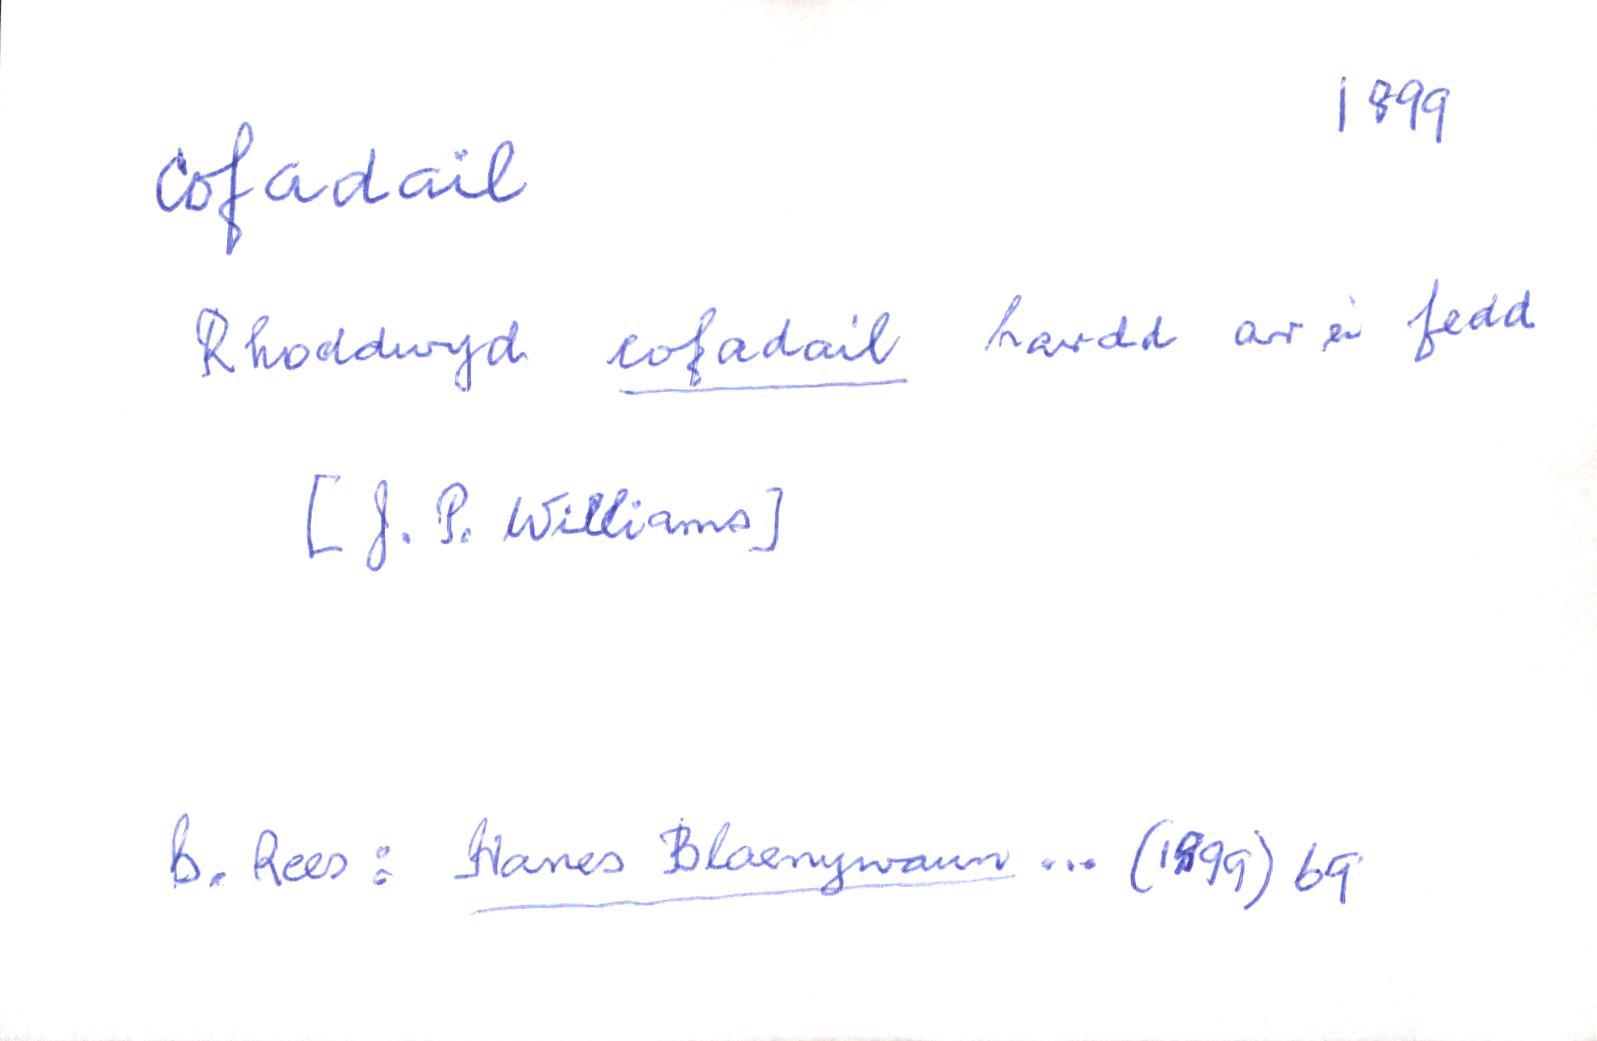 1899
cofadail
Rhoddwyd cofadail hardd ar ei fedd
[J. P. Williams]
B. Rees: Hanes Blaenywaun ... (1899) 69